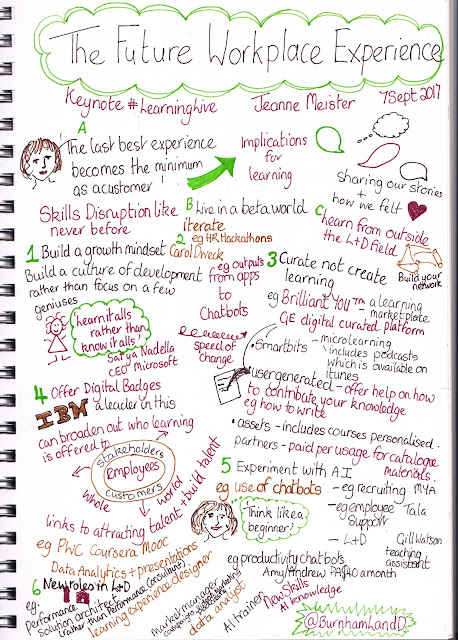 The Future Workplace Experience
Keynote #Learninghive Jeanne Meister 7 Sept 2017
A
The last best experience
becomes the minimum
as a customer!
Implications
for
learning
sharing our stories
+
how we felt
Skills Disruption like
never before
B Live in a beta world
iterate
C, learn from outside
the L+D field
Build your
network
1 Build a growth mindset Carol Dweck
Build a culture of development
rather than focus on a few
geniuses
2 eg HR Hackathons
eg outputs
from apps
to
Chatbots
speed of
change
3 Curate not create
learning
eg Brilliant You™ a learning
marketplace
GE digital curated platform
• Smartbits - microlearning
includes podcasts
which is available on
itunes
usergenerated - offer help on how
to contribute your knowledge
eg how to write
• assets - includes courses personalised.
partners - paid per usage for catalogue
materials.
Learnitalls
rather than
know it alls!
Satya Nadella
CEO Microsoft
4 Offer Digital Badges
IBM a leader in this
can broaden out who learning
is offered to
stakeholders
Employees
customers
whole world
links to attracting talent + build talent
eg PWC Coursera Mooc
Data Analytics + presentations
5 Experiment with A.I
eg use of chatbots
- eg recruiting MYA
- eg employee Tala
support
- L+D Gill Watson
teaching
assistant
Think like a
beginner!
eg productivity chatbots
Amy/Andrew PA $40 a month
6 New roles in L+D
eg.
Performance
solution architect
(rather than Performance Consultant)
learning experience designer
market manager
data analyst
AI trainer
New Skills
AI knowledge
@BurnhamLandD